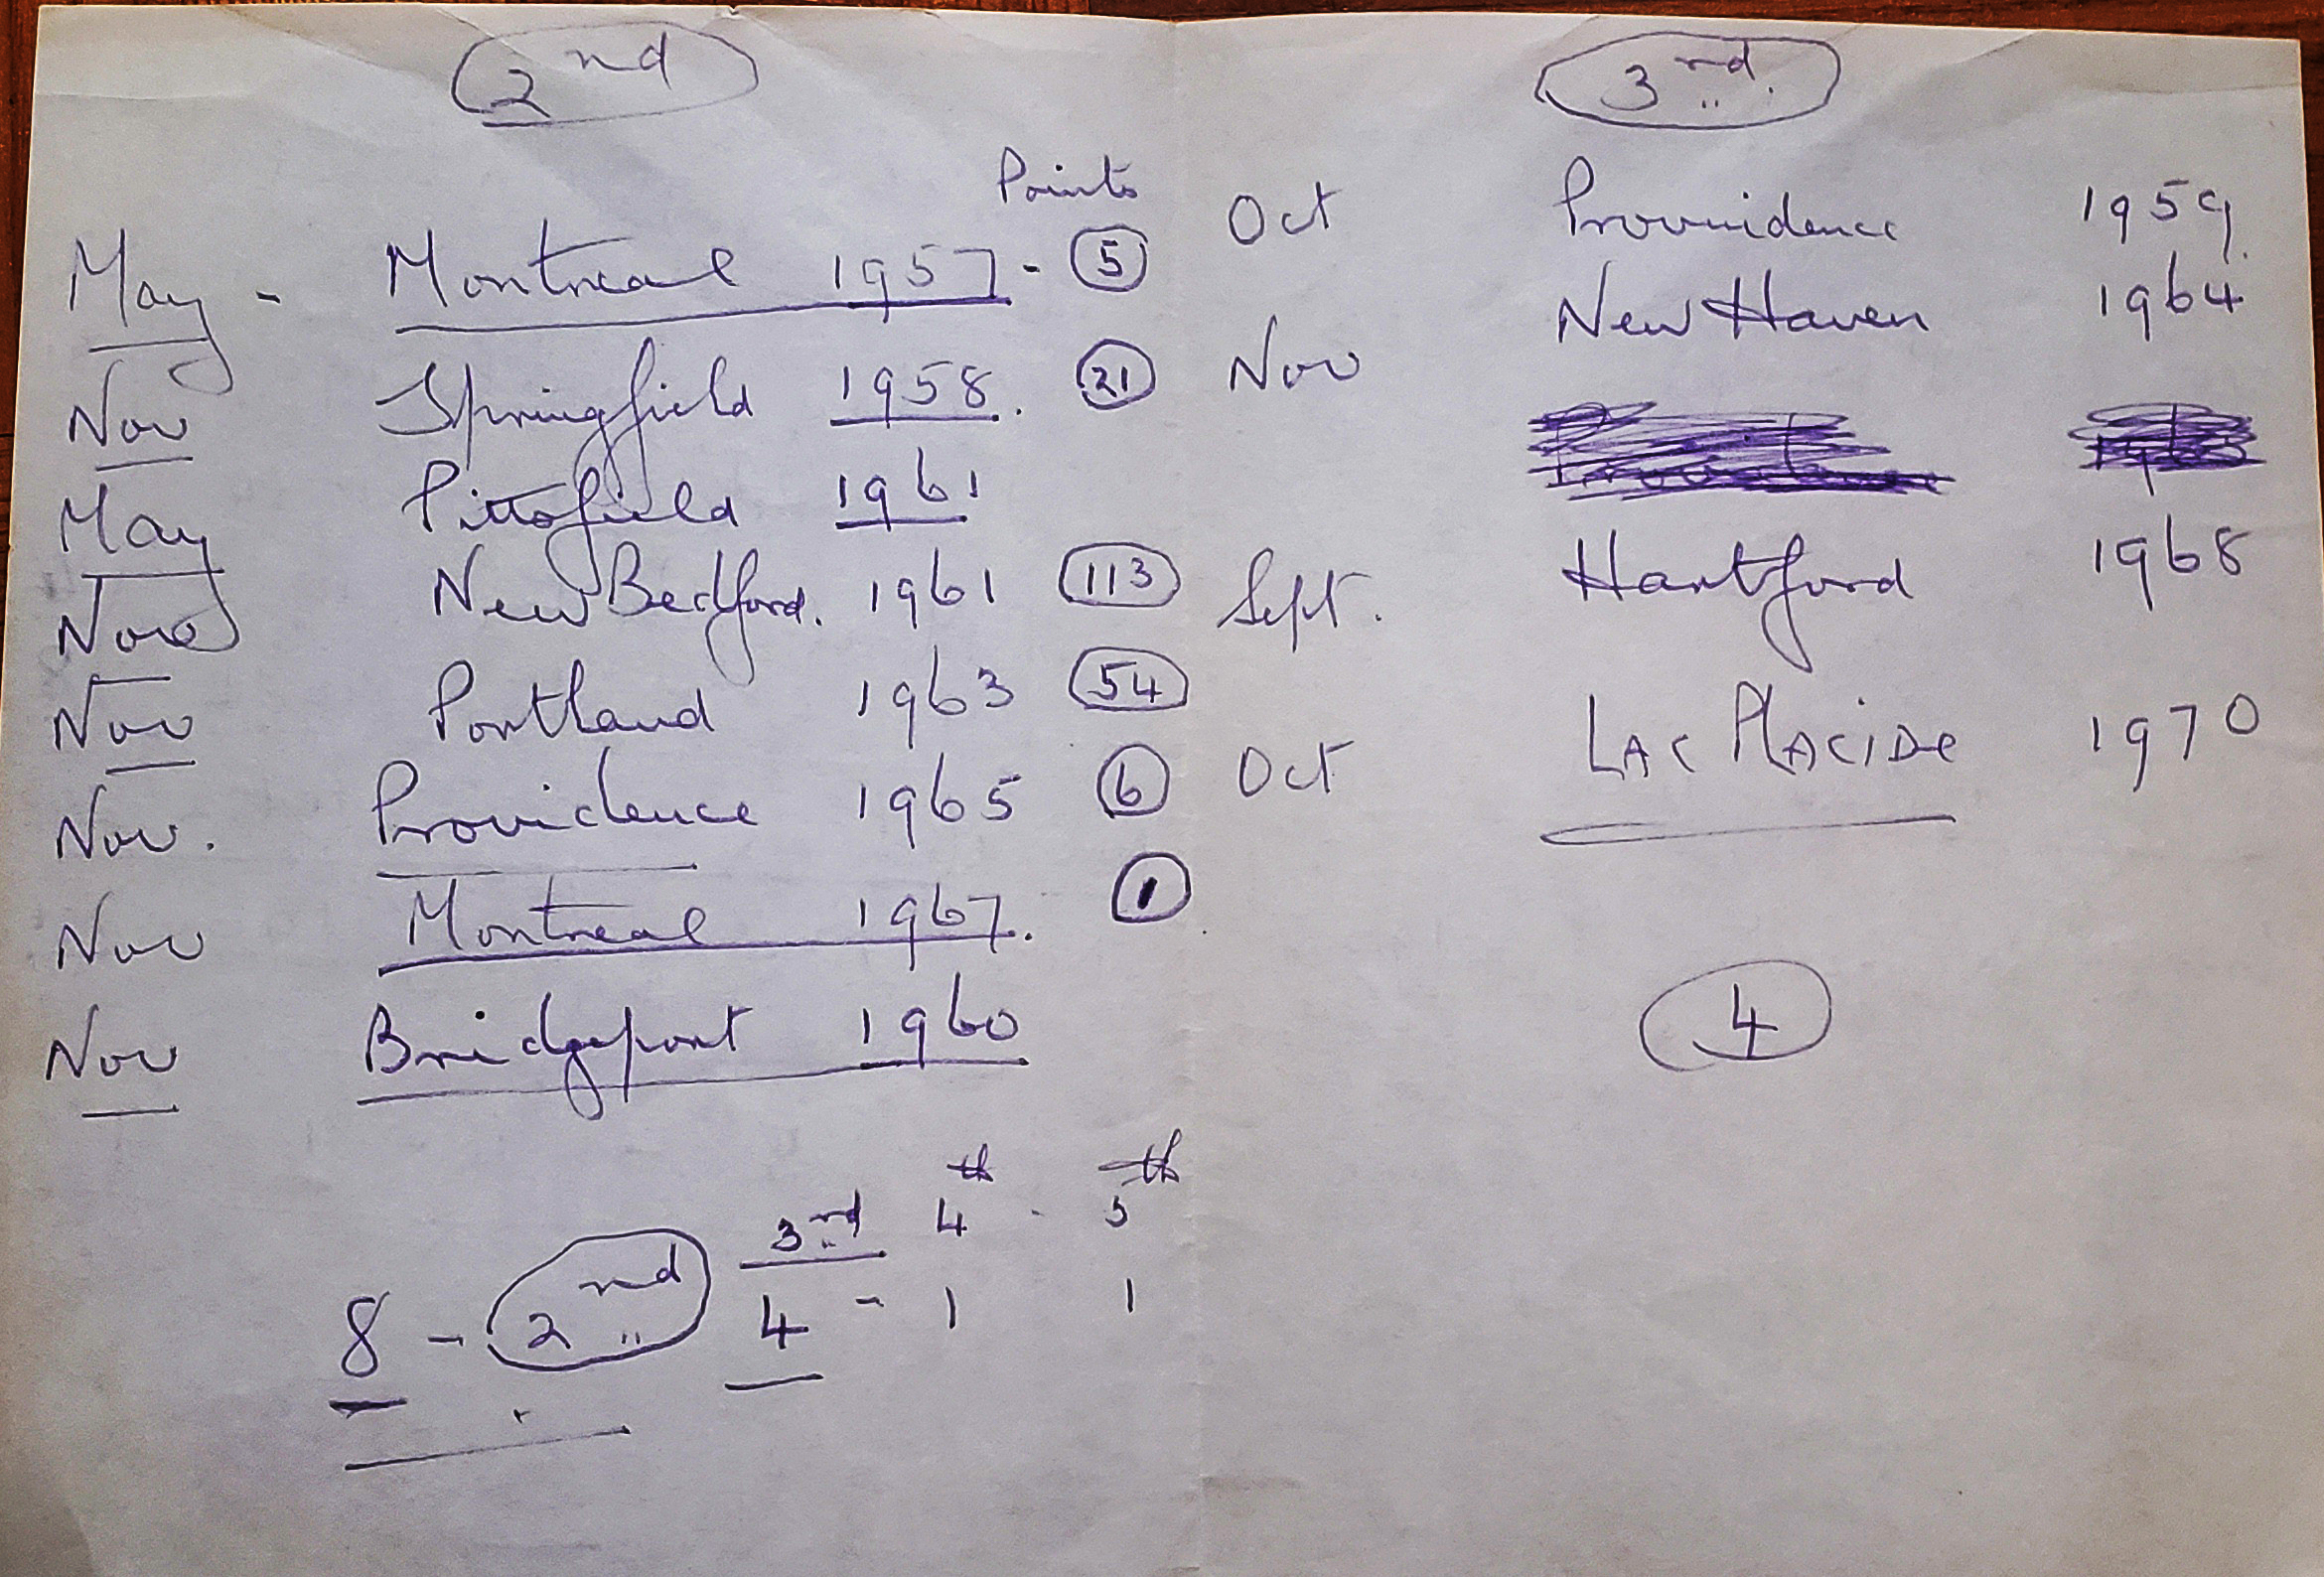 2nd
Points
May - Montreal 1957 - 5
Nov Springfield 1958. 21
May Pittsfield 1961
Nov New Bedford. 1961 113
Nov Portland 1963 54
Nov. Providence 1965 6
Nov Montreal 1967. 1
Nov Bridgeport 1960
3rd 4th - 5th
8 - 2nd 4 - 1 1
3rd.
Oct Providence 1959.
Nov New Haven 1964
Sept. Hartford 1968
Oct LAC PLACIDe 1970
4